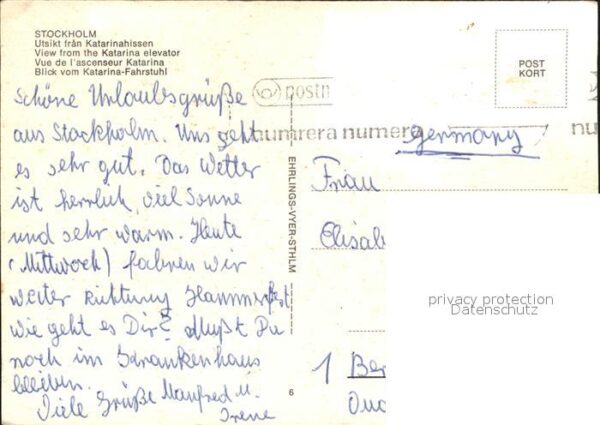 STOCKHOLM
Utsikt från Katarinahissen
View from the Katarina elevator
Vue de l'ascenseur Katarina
Blick vom Katarina-Fahrstuhl
POST
KORT
postn
numrera numrera
nu
Schöne Urlaubsgrüße
aus Stockholm. Uns geht
es sehr gut. Das Wetter
ist herrlich, viel Sonne
und sehr warm. Heute
(Mittwoch) fahren wir
weiter Richtung Hammerfest
Wie geht es Dir? Mußt Du
noch im Krankenhaus
bleiben.
Viele Grüße Manfred u.
Irene
EHRLINGS-VYER-STHLM
6
Germany
Frau
Elisab
1 Ber
privacy protection
Datenschutz